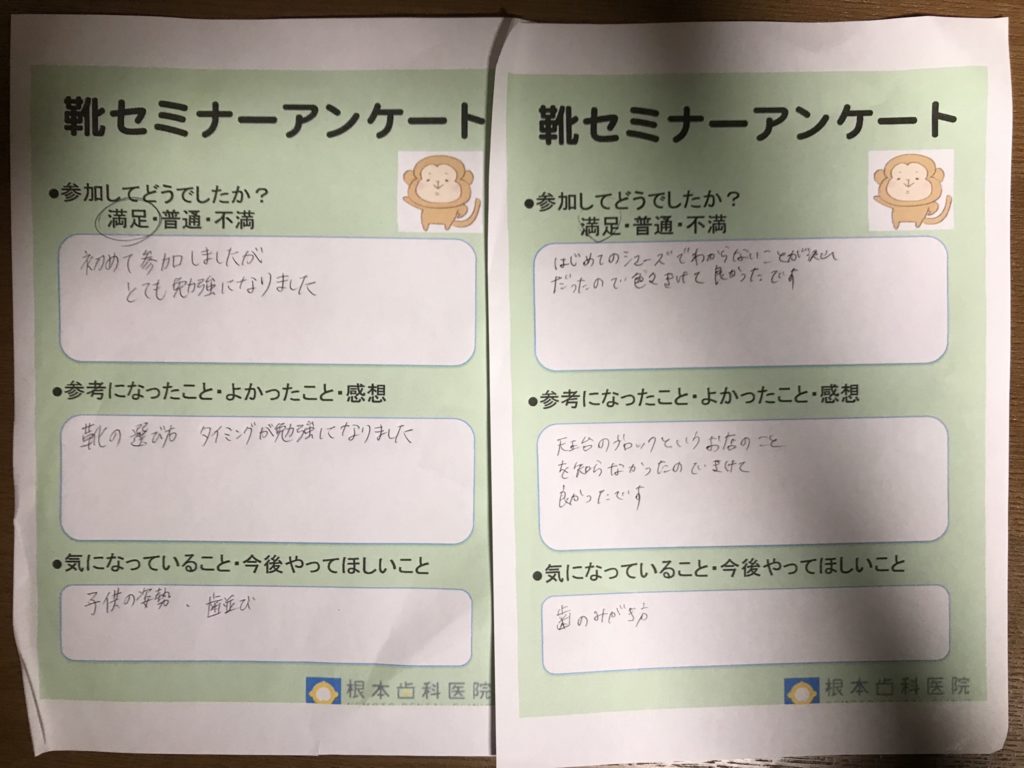 靴セミナーアンケート
●参加してどうでしたか？
満足・普通・不満
初めて参加しましたが
とても勉強になりました
●参考になったこと・よかったこと・感想
靴の選び方 タイミングが勉強になりました
●気になっていること・今後やってほしいこと
子供の姿勢、歯並び
根本歯科医院
靴セミナーアンケート
●参加してどうでしたか？
満足・普通・不満
はじめてのシューズでわからないことが沢山
だったので色々きけて良かったです
●参考になったこと・よかったこと・感想
天王台のブロックというお店のこと
を知らなかったのできけて
良かったです
●気になっていること・今後やってほしいこと
歯のみがき方
根本歯科医院